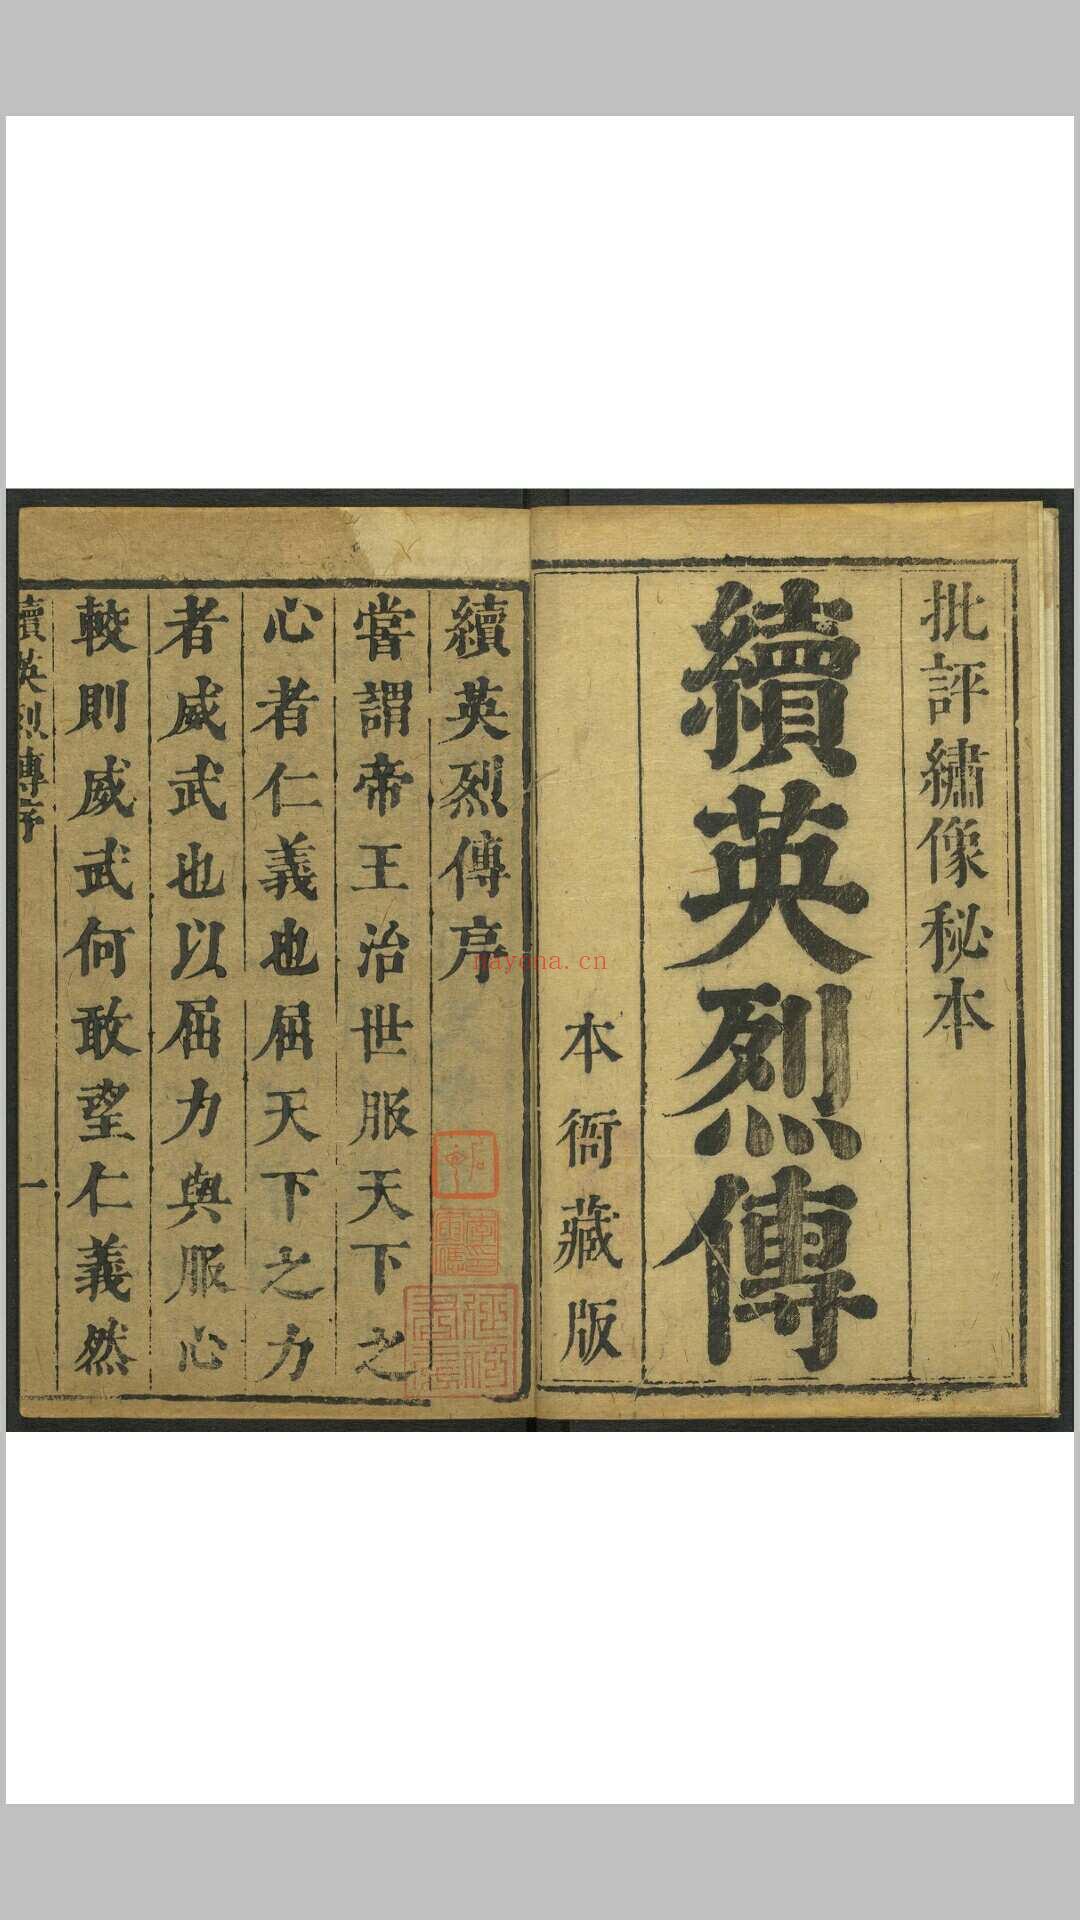 批評繡像秘本
續英烈傳
本衙藏版
續英烈傳序
嘗謂帝王治世服天下之
心者仁義也屈天下之力
者威武也以屈力與服心
較則威武何敢望仁義然
續英烈傳序
一
nayona.cn